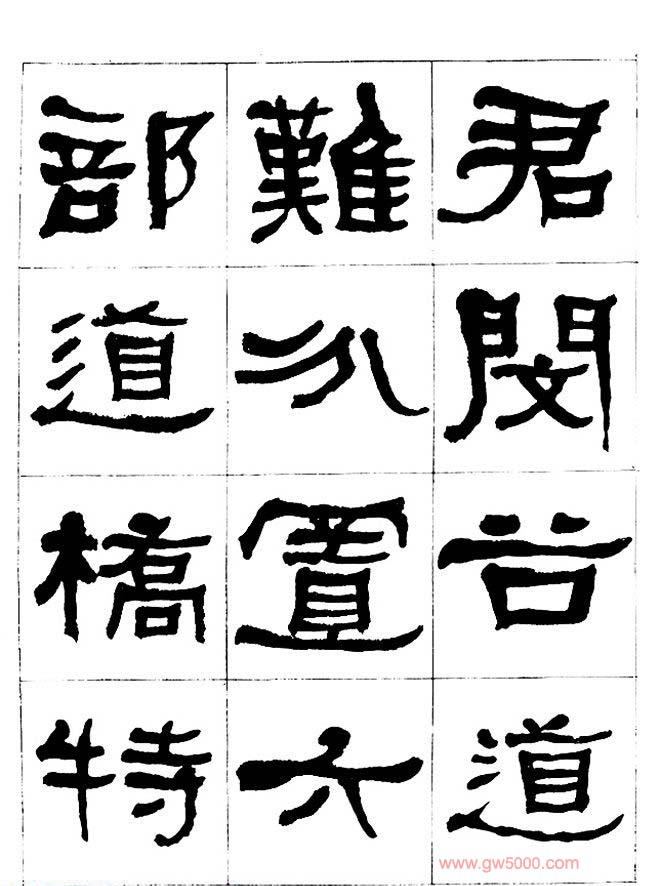 君閔谷道
難分置六
部道橋特
www.gw5000.com